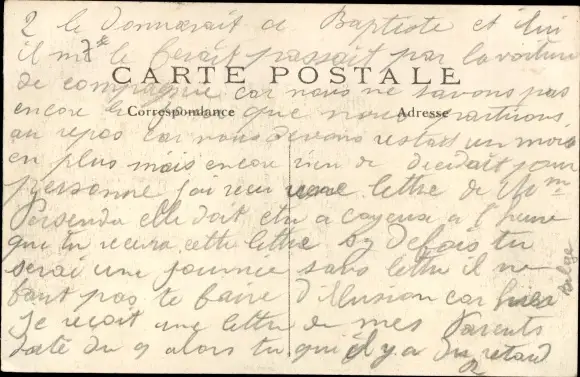 2 le donnerait a Baptiste et lui
il me le ferait passait par la voiture
CARTE POSTALE
de compagnie car nous ne savons pas
Correspondance
Adresse
encore le jour que nous partirons
au repos car nous devons restait un mois
en plus mais encore rien de decidait pour
personne j'ai recu une lettre de Mme
elle doit etre a a l'heure
que tu recevra cette lettre Si defois tu
serai une journée sans lettre il ne
faut pas te faire d'illusion car hier
je recoit une lettre de mes Parents
daté du 9 alors tu qu'il y a du retard